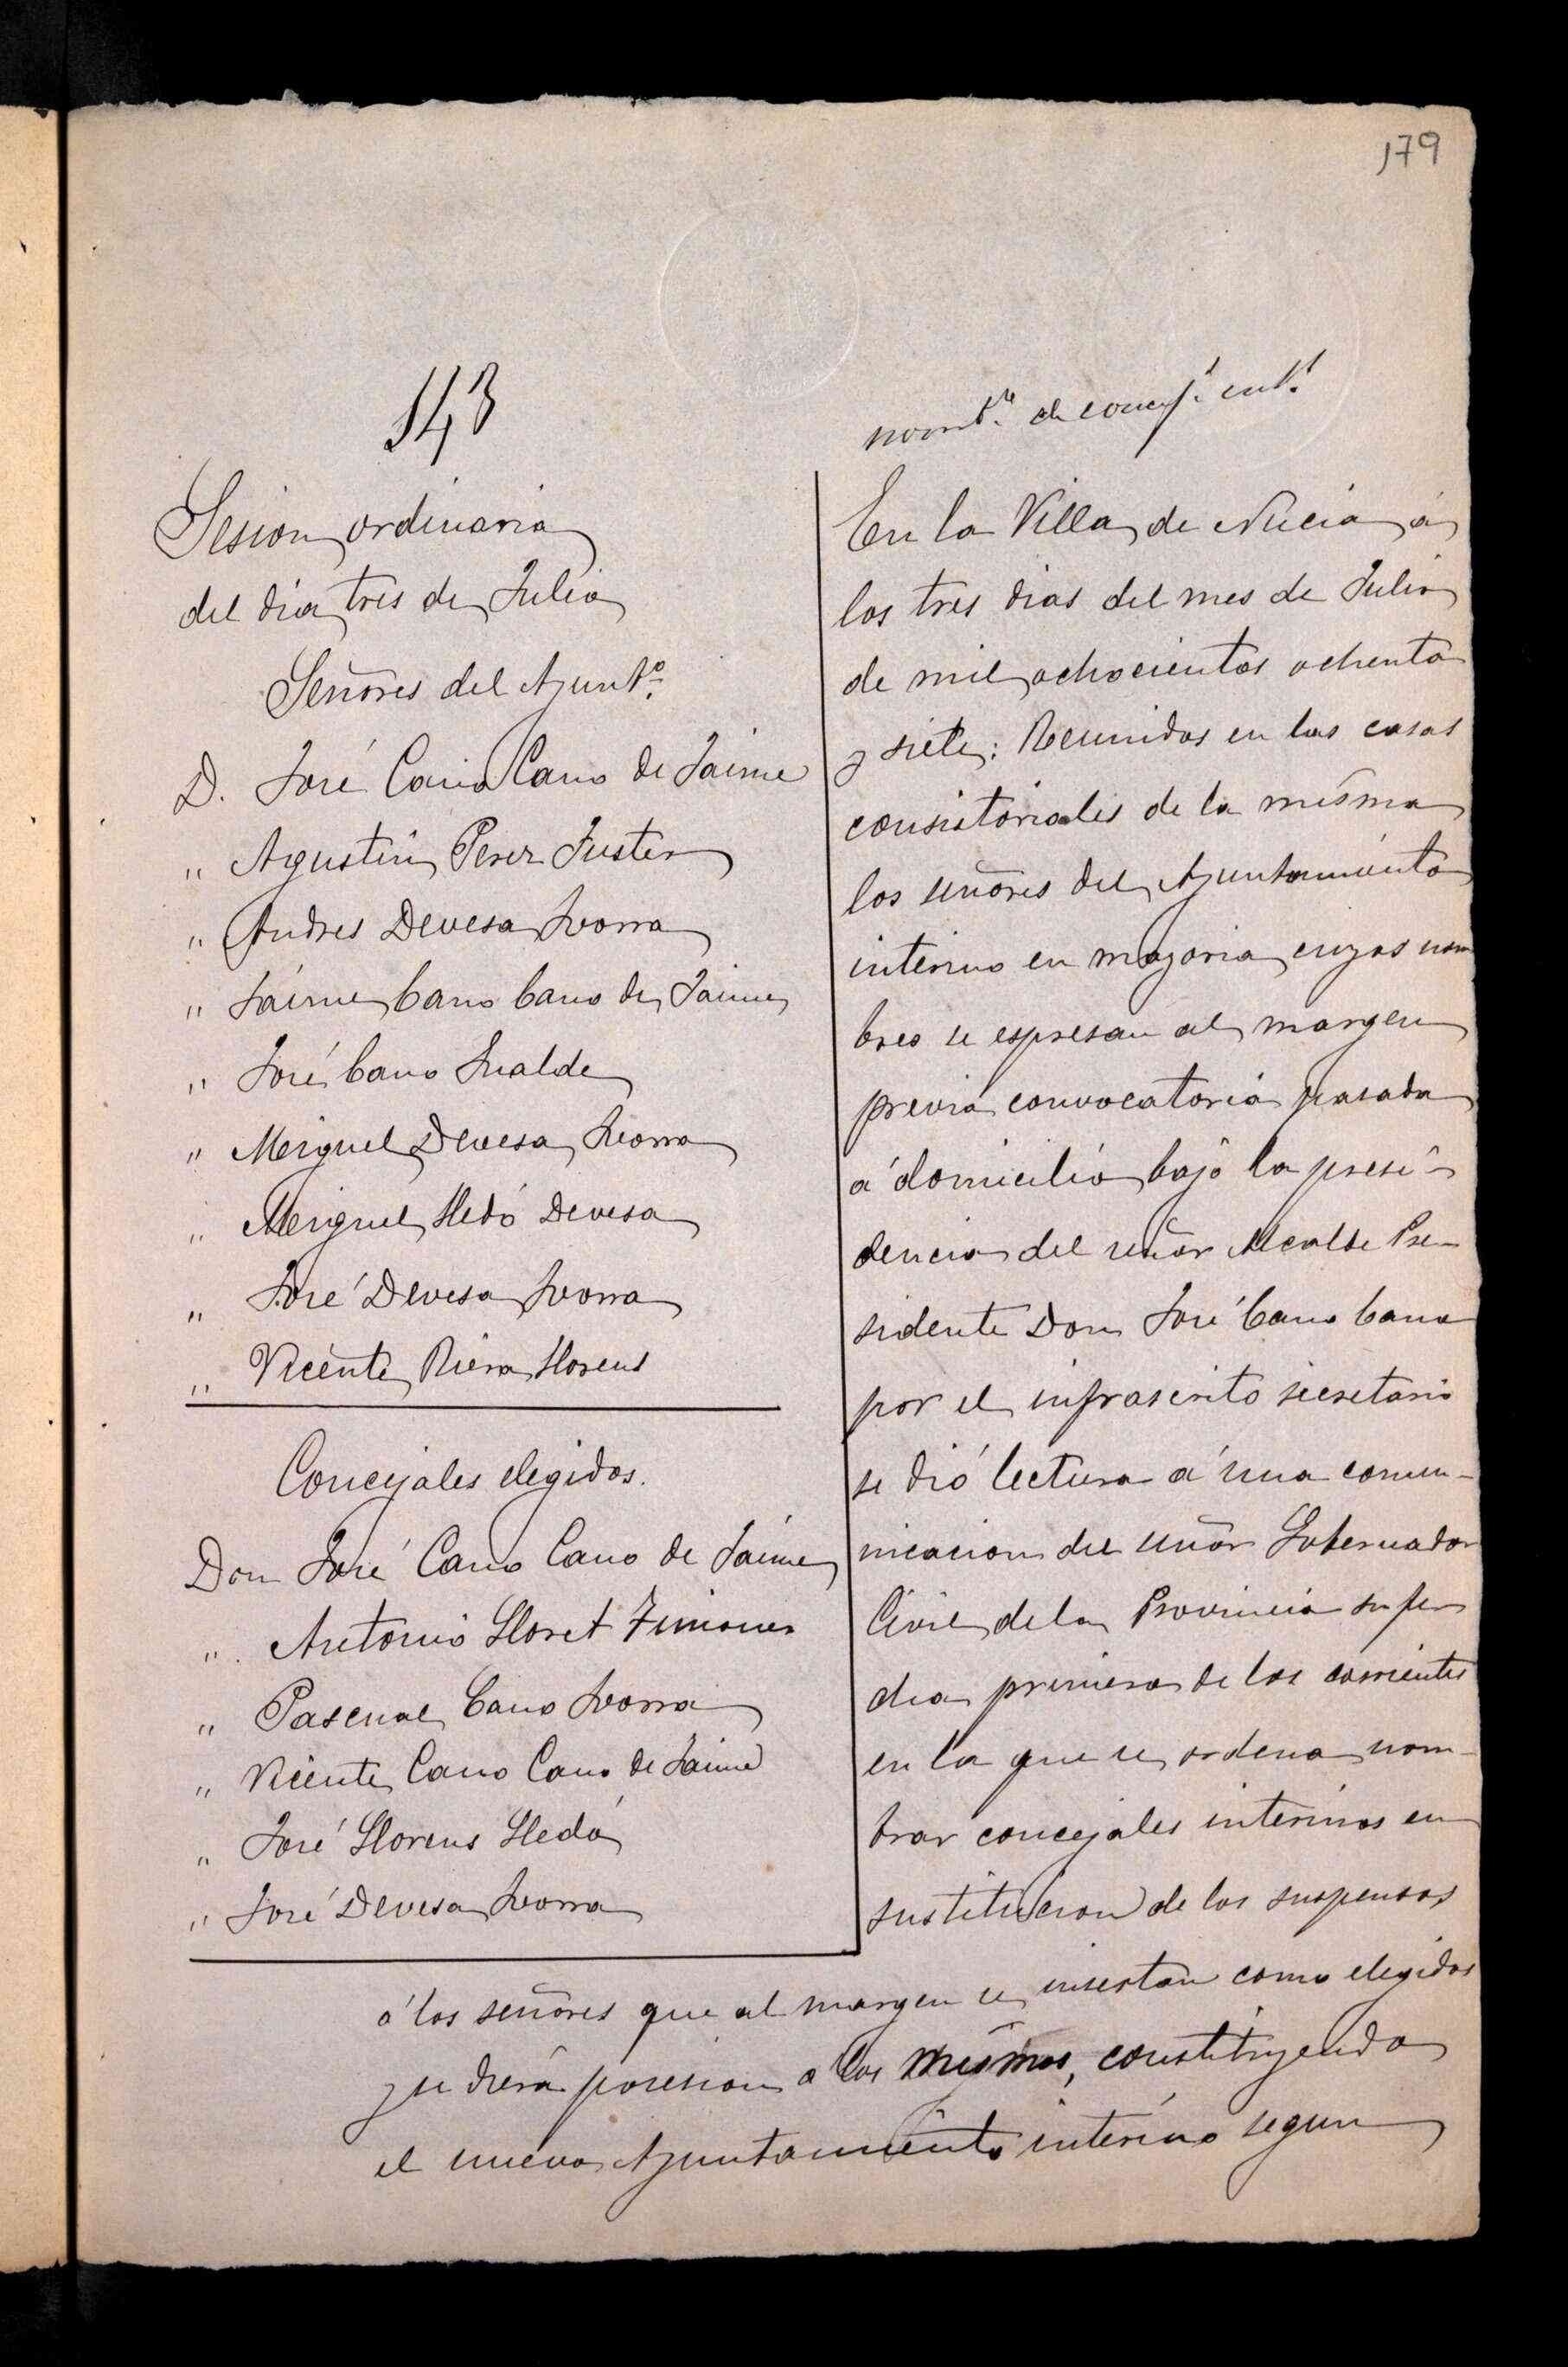 179
143
nomb.to de concej.s int.s
Sesion ordinaria
del dia tres de Julio
Señores del Ayunt.o
D. José Cano Cano de Jaime
" Agustin Perez Fuster
" Andres Devesa Ivorra
" Jaime Cano Cano de Jaime
" José Cano Sualde
" Meiguel Devesa Ivorra
" Meiguel Lledó Devesa
" José Devesa Ivorra
" Vicente Riera Llorens
Concejales elegidos.
Don José Cano Cano de Jaime
" Antonio Lloret
" Pascual Cano Ivorra
" Vicente Cano Cano de Jaime
" José Llorens Lledó
" José Devesa Ivorra
En la Villa de Nucia á
los tres dias del mes de Julio
de mil ochocientos ochenta
y siete: Reunidos en las casas
consistoriales de la misma
los señores del Ayuntamiento
interino en mayoria cuyos nom
bres se espresan al margen
previa convocatoria pasada
á domicilio bajo la presi-
dencia del señor Alcalde Pre-
sidente Don José Cano Cano
por el infrascrito secretario
se dió lectura á una comu-
nicacion del señor Gobernador
Civil de la Provincia su fe
dia primero de los corrientes
en la que se ordena nom-
brar concejales interinos en
sustitucion de los suspensos
á los señores que al margen se insertan como elegidos
y se diera posesion a los mismos, constituyendo
el nuevo Ayuntamiento interino segun